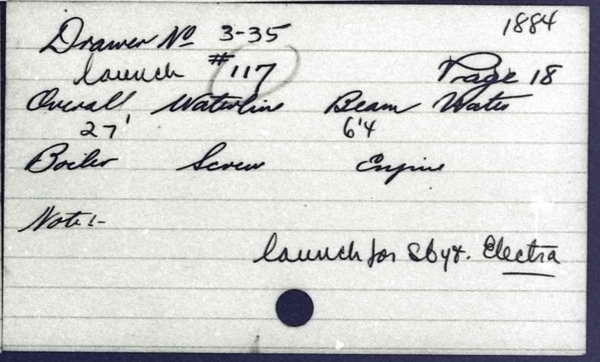 1884
Drawer No 3-35
launch #117 Page 18
Overall Waterline Beam Water
27' 6'4
Boiler Screw Engine
Note:-
launch for Sbyt. Electra